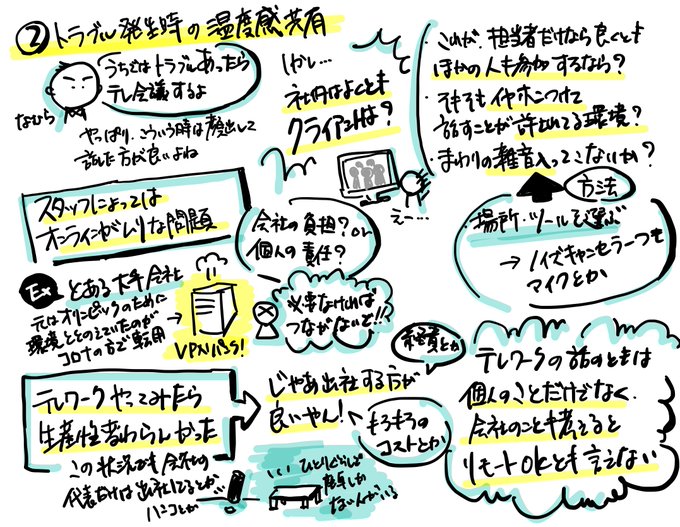 ② トラブル発生時の温度感共有
うちではトラブルあったら
テレ会議するよ
なむら
やっぱり、こういう時は顔出して
話した方が良いよね
しかし…
社内はよくとも
クライアントは？
えー…
・これが、担当者だけなら良くとも
ほかの人も参加するなら？
・そもそもイヤホンつけて
話すことが許されてる環境？
・まわりの雑音入ってこないか？
方法
場所・ツールを選ぶ
→ノイズキャンセラーつき
マイクとか
スタッフによっては
オンラインがムリな問題
会社の負担？or
個人の責任？
Ex とある大手会社
元はオリンピックのために
環境ととのえていたのが
コロナの方で転用
→
VPNパンク！
必要なければ
つながないで!!
テレワークやってみたら
生産性変わらんかった
この状況でも会社の
代表だけは出社してるとか
ハンコとか
じゃあ出社する方が
良いやん！
経費とか
もろもろの
コストとか
ひとりぐらしだと
座卓しか
ない人がいる
テレワークの話のときは
個人のことだけでなく、
会社のことも考えると
リモートOKとも言えない